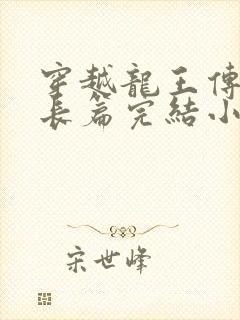 穿越龍王傳
長篇完結小
宋世峰